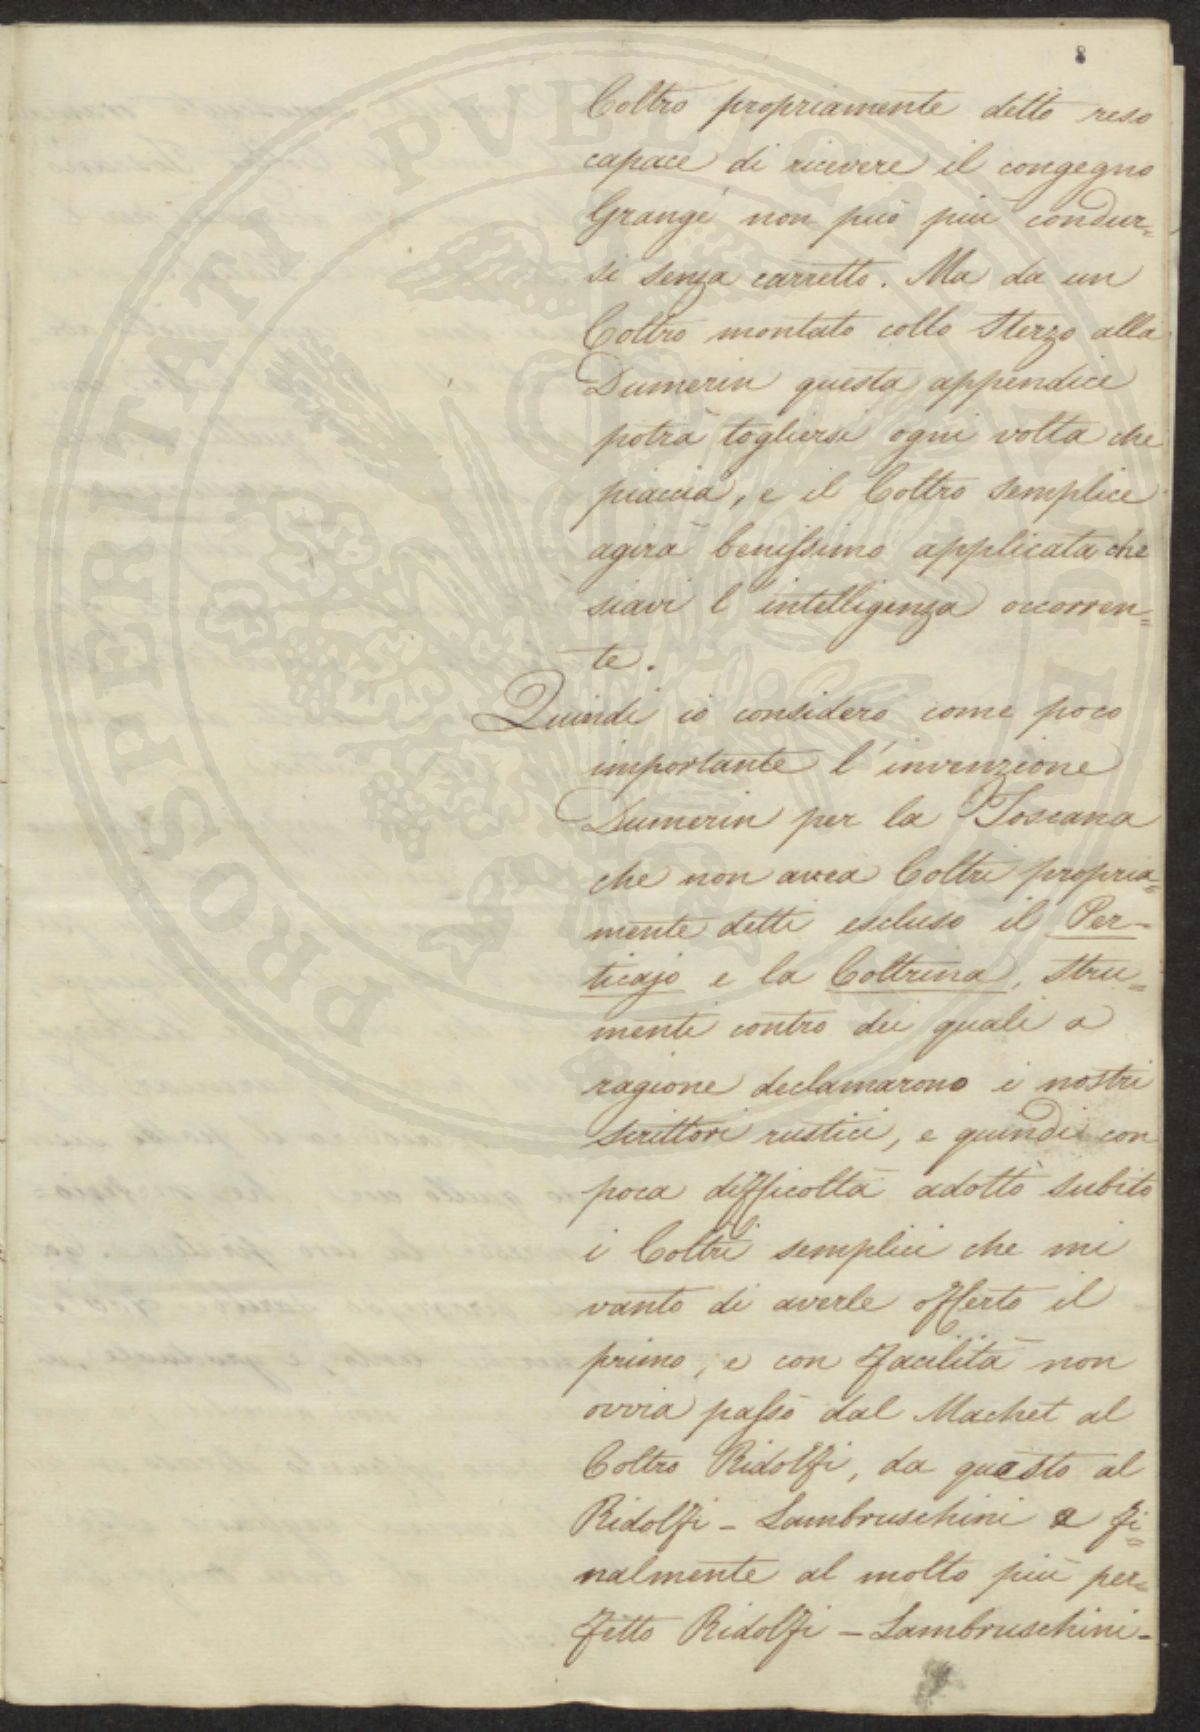 8
Coltro propriamente detto reso
capace di ricevere il congegno
Grangé non può più condur=
si senza carretto. Ma da un
Coltro montato collo Sterzo alla
Dumerin questa appendice
potrà togliersi ogni volta che
piaccia, e il Coltro semplice
agirà benissimo applicata che
siavi l'intelligenza occorren=
te.
Quindi io considero come poco
importante l'invenzione
Dumerin per la Toscana
che non avea Coltri propria=
mente detti escluso il Per-
ticajo e la Coltrina, stru=
menti contro dei quali a
ragione declamarono i nostri
scrittori rustici, e quindi con
poca difficoltà adottò subito
i Coltri semplici che mi
vanto di averle offerto il
primo, e con facilità non
ovvia passò dal Machet al
Coltro Ridolfi, da questo al
Ridolfi - Lambruschini e fi=
nalmente al molto più per=
fetto Ridolfi - Lambruschini -
PROSPERITATI PUBLICAE AUGENDAE